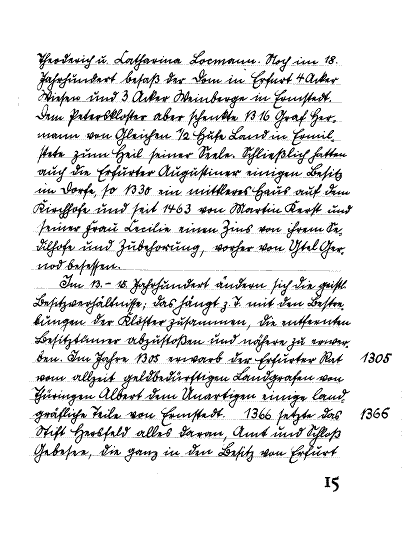 Theoderich u. Catharina Locmann. Noch im 18.
Jahrhundert besaß der Dom in Erfurt 4 Acker
Wiesen und 3 Acker Weinberge in Ermstedt.
Dem Peterskloster aber schenkte 1316 Graf Her-
mann von Gleichen 1/2 Hufe Land in Ermil-
stete zum Heil seiner Seele. Schließlich hatten
auch die Erfurter Augustiner einigen Besitz
im Dorfe, so 1330 ein mittleres Haus auf dem
Kirchhofe und seit 1463 von Martin Kerst und
seiner Frau Cecilie einen Zins von ihrem Se-
dilhofe und Zubehorung, vorher von Ytel Ger-
nod besessen.
Im 13.- 18. Jahrhundert ändern sich die geistl.
Besitzverhältnisse; das hängt z. T. mit den Bestre-
bungen der Klöster zusammen, die entfernten
Besitztümer abzustoßen und nähere zu erwer-
ben. Im Jahre 1305 erwarb der Erfurter Rat 1305
vom allzeit geldbedürftigen Landgrafen von
Thüringen Albert dem Unartigen einige land-
gräfliche Teile von Ermstedt. 1366 setzte das 1366
Stift Hersfeld alles daran, Amt und Schloß
Gebesee, die ganz in den Besitz von Erfurt
15